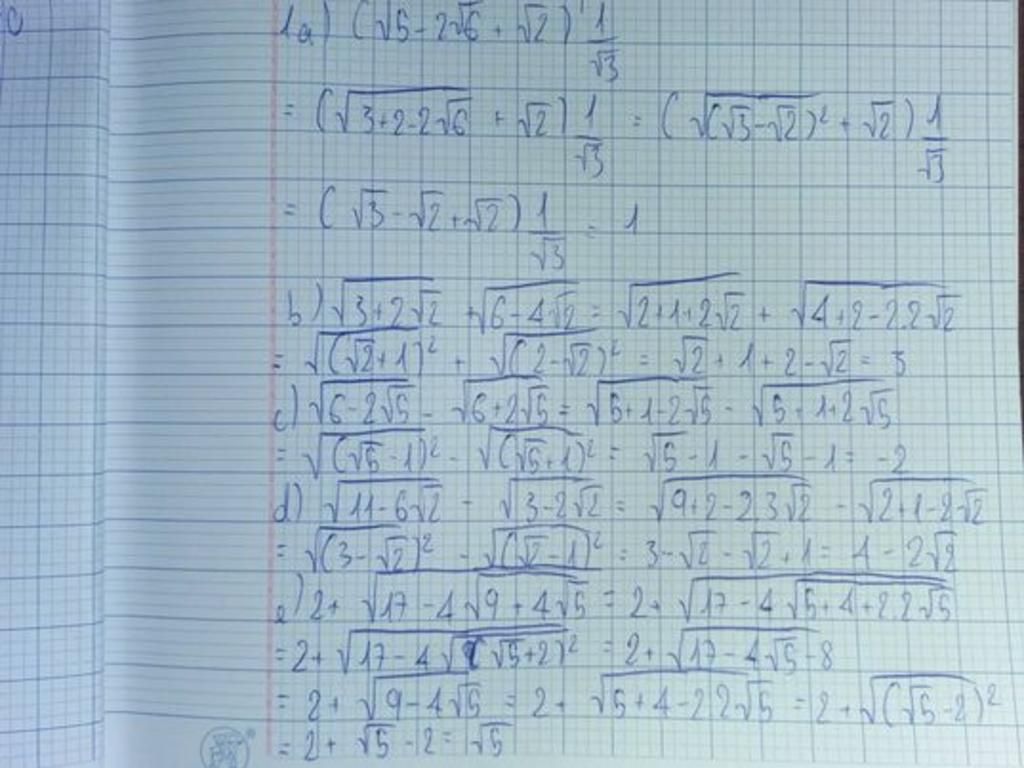 1a) (√5-2√6 + √2) 1/√3
= (√(3+2-2√6) + √2) 1/√3 = (√((√3-√2)²) + √2) 1/√3
= (√3 - √2 + √2) 1/√3 = 1
b) √(3+2√2) + √(6-4√2) = √(2+1+2√2) + √(4+2-2.2√2)
= √((√2+1)²) + √((2-√2)²) = √2 + 1 + 2 - √2 = 3
c) √(6-2√5) - √(6+2√5) = √(5+1-2√5) - √(5+1+2√5)
= √((√5-1)²) - √((√5+1)²) = √5 - 1 - √5 - 1 = -2
d) √(11-6√2) - √(3-2√2) = √(9+2-2.3√2) - √(2+1-2√2)
= √((3-√2)²) - √((√2-1)²) = 3-√2 - √2 + 1 = 4 - 2√2
e) 2 + √(17-4√(9+4√5)) = 2 + √(17-4√(5+4+2.2√5))
= 2 + √(17-4√((√5+2)²)) = 2 + √(17-4√5-8)
= 2 + √(9-4√5) = 2 + √(5+4-2.2√5) = 2 + √((√5-2)²)
= 2 + √5 - 2 = √5